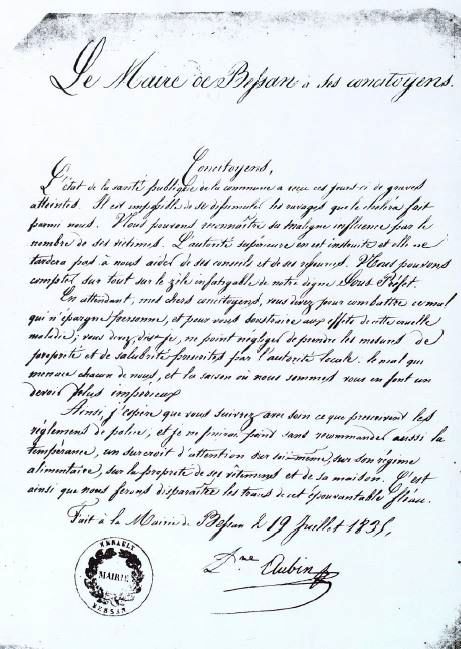 Le Maire de Bessan à ses concitoyens.
Concitoyens,
L'état de la santé publique de la commune a reçu ces jours-ci de graves
atteintes. Il est impossible de se dissimuler les ravages que le choléra fait
parmi nous. Nous pouvons reconnaître sa maligne influence par le
nombre de ses victimes. L'autorité supérieure en est instruite et elle ne
tardera pas à nous aider de ses conseils et de ses secours. Nous pouvons
compter sur tout sur le zèle infatigable de notre digne Sous Préfet.
En attendant, mes chers concitoyens, vous devez pour combattre ce mal
qui n'épargne personne, et pour vous soustraire aux effets de cette cruelle
maladie; vous devez, dis-je, ne point négliger de prendre les mesures de
propreté et de salubrité prescrites par l'autorité locale. le mal qui
menace chacun de nous, et la saison où nous sommes vous en font un
devoir plus impérieux
Ainsi, j'espère que vous suivrez avec soin ce que prescrivent les
règlemens de police, et je ne finirai point sans recommander aussi la
tempérance, un surcroit d'attention sur soi-même, sur son régime
alimentaire, sur la propreté de ses vêtemens et de sa maison. C'est
ainsi que nous ferons disparaître les traces de cet épouvantable fléau.
Fait à la Mairie de Bessan le 19 Juillet 1835,
HERAULT
MAIRIE
BESSAN
Aubin